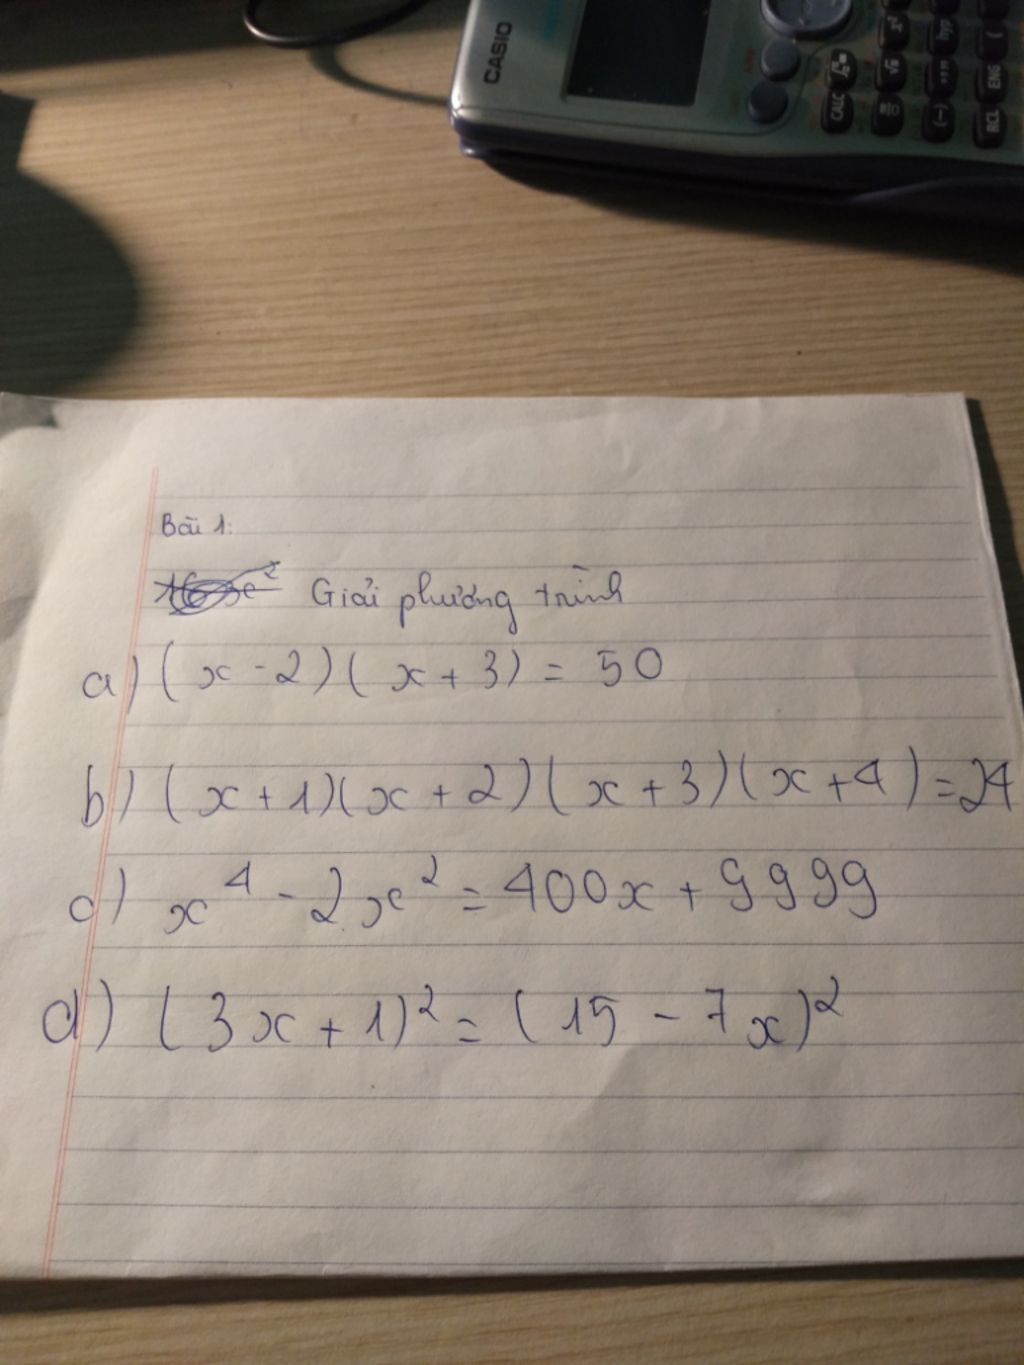 CASIO
CALC
x²
hyp
(
√
,,,
ENG
(-)
RCL
Bài 1:
Giải phương trình
a) (x - 2)(x + 3) = 50
b) (x + 1)(x + 2)(x + 3)(x + 4) = 24
c) x⁴ - 2x² = 400x + 9999
d) (3x + 1)² = (15 - 7x)²